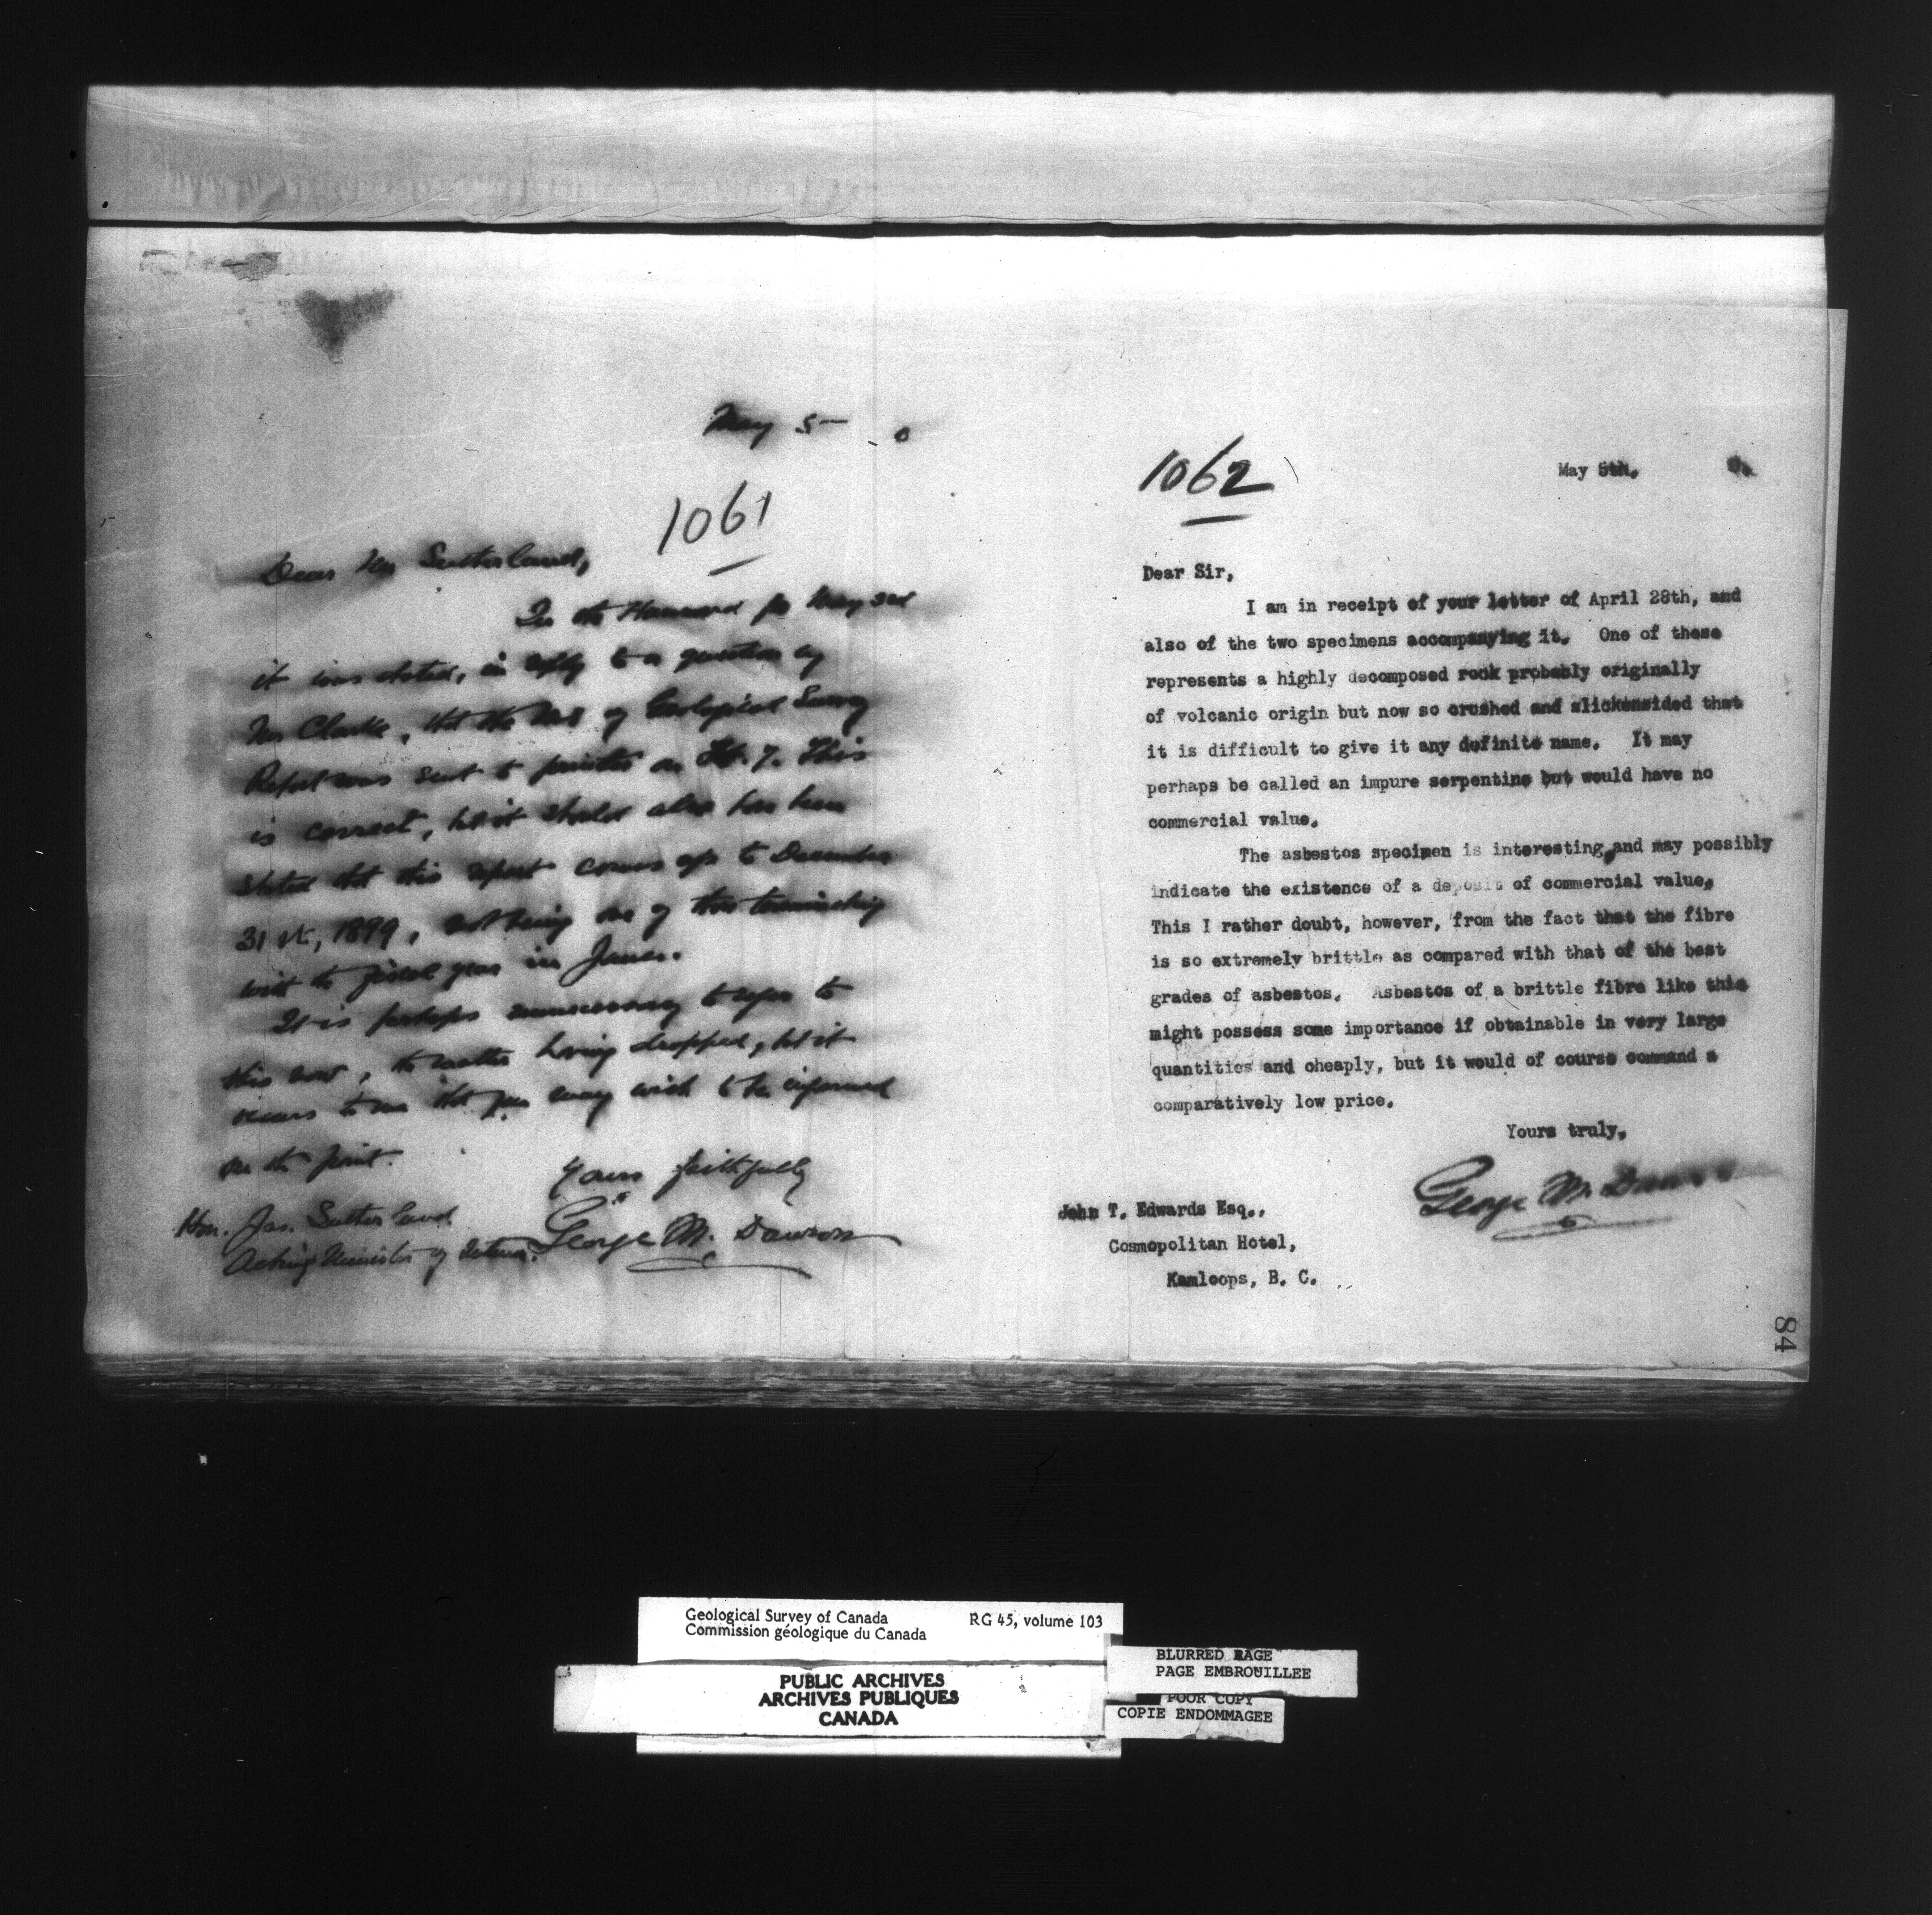 May 5 - 0
1061
Dear Mr Sutherland,
In the Hansard for May 3rd
it was stated, in reply to a question by
Mr Clarke, that the MS of Geological Survey
Report was sent to printer on 7. This
is correct, but it should also have been
stated that this report comes up to December
31st, 1899, not being one of those terminating
with the fiscal year in June.
It is perhaps unnecessary to refer to
this now, the matter having dropped, but it
occurs to me that you may wish to be informed
on the point.
Yours faithfully
George M. Dawson
Hon. Jas. Sutherland
Acting Minister of Interior.
1062
May 5th, 0.
Dear Sir,
I am in receipt of your letter of April 28th, and
also of the two specimens accompanying it. One of these
represents a highly decomposed rock probably originally
of volcanic origin but now so crushed and slickensided that
it is difficult to give it any definite name. It may
perhaps be called an impure serpentine but would have no
commercial value.
The asbestos specimen is interesting, and may possibly
indicate the existence of a deposit of commercial value.
This I rather doubt, however, from the fact that the fibre
is so extremely brittle as compared with that of the best
grades of asbestos. Asbestos of a brittle fibre like this
might possess some importance if obtainable in very large
quantities and cheaply, but it would of course command a
comparatively low price.
Yours truly,
George M. Dawson
John T. Edwards Esq.,
Cosmopolitan Hotel,
Kamloops, B. C.
84
Geological Survey of Canada RG 45, volume 103
Commission géologique du Canada
PUBLIC ARCHIVES
ARCHIVES PUBLIQUES
CANADA
BLURRED PAGE
PAGE EMBROUILLEE
POOR COPY
COPIE ENDOMMAGEE